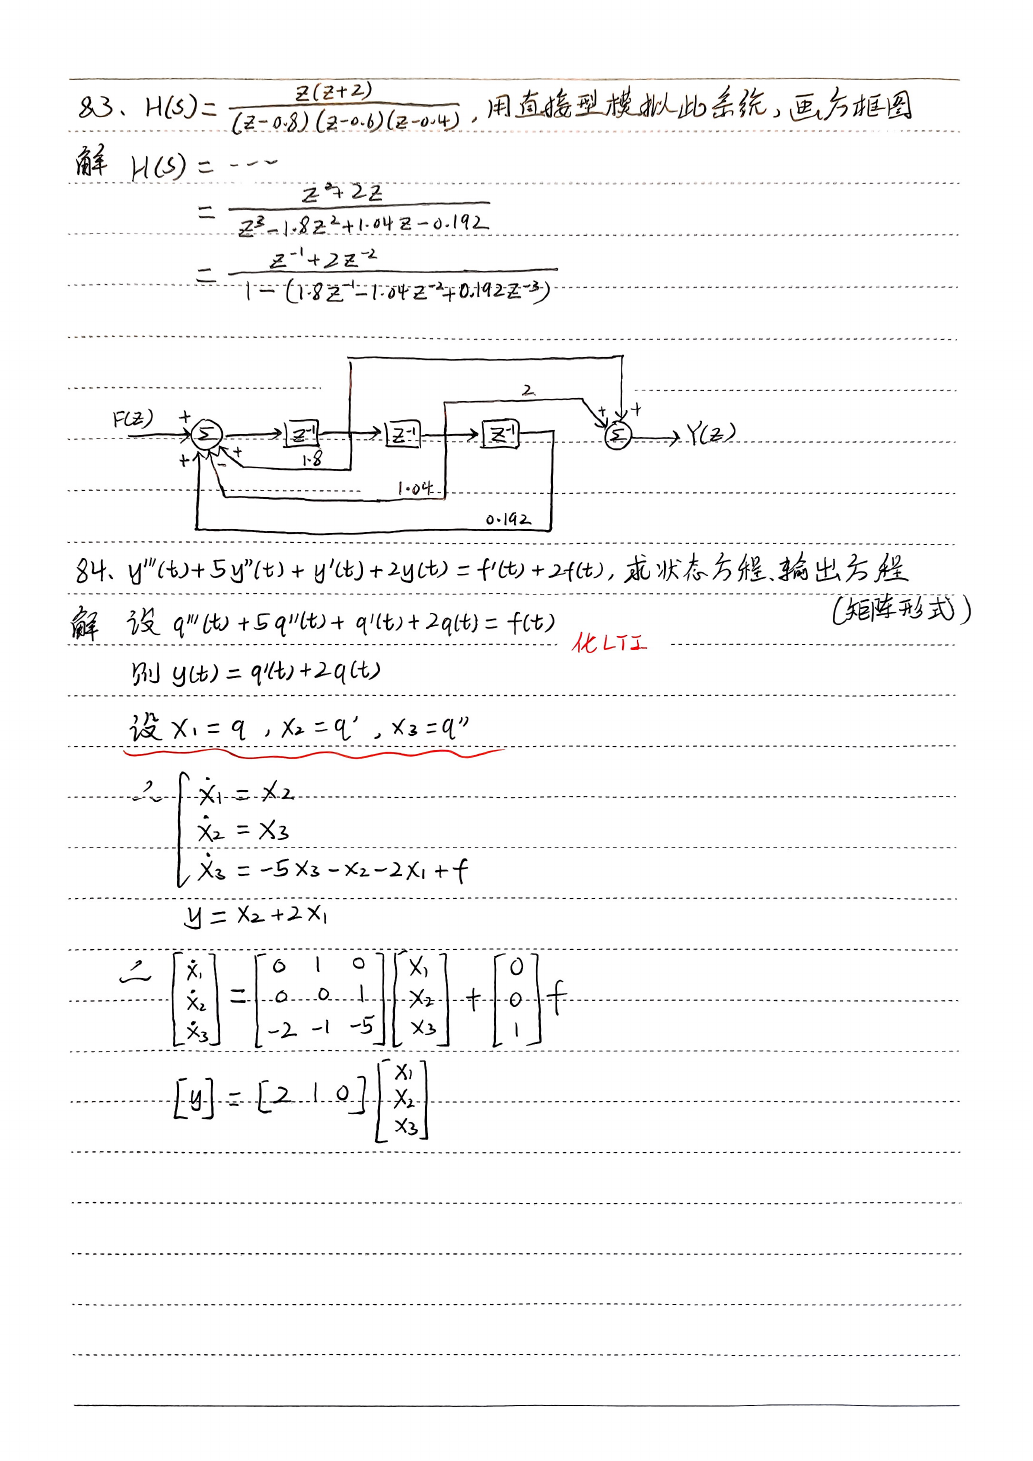 83、H(s)= z(z+2) / (z-0.8)(z-0.6)(z-0.4) ，用直接型模拟此系统，画方框图
解 H(s) = ---
= z²+2z / z³-1.8z²+1.04z-0.192
= z⁻¹+2z⁻² / 1-(1.8z⁻¹-1.04z⁻²+0.192z⁻³)
2
F(z) + Σ z⁻¹ z⁻¹ z⁻¹ + + Σ Y(z)
+ - + 1.8
1.04
0.192
84、y'''(t)+5y''(t)+y'(t)+2y(t)=f'(t)+2f(t), 求状态方程、输出方程
(矩阵形式)
解 设 q'''(t)+5q''(t)+q'(t)+2q(t)=f(t)
化LTI
则 y(t)=q'(t)+2q(t)
设 x₁=q , x₂=q' , x₃=q''
∴ { ẋ₁ = x₂
ẋ₂ = x₃
ẋ₃ = -5x₃-x₂-2x₁+f
y = x₂+2x₁
∴ [ẋ₁ ẋ₂ ẋ₃] = [0 1 0; 0 0 1; -2 -1 -5] [x₁ x₂ x₃] + [0 0 1] f
[y] = [2 1 0] [x₁ x₂ x₃]